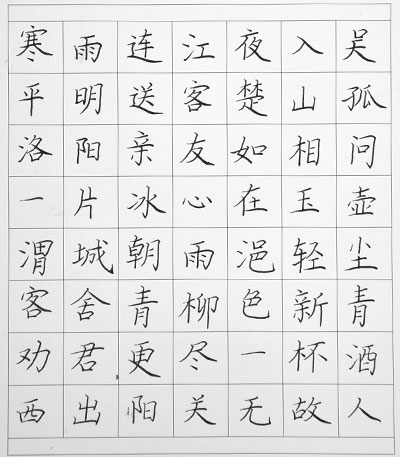 寒雨连江夜入吴
平明送客楚山孤
洛阳亲友如相问
一片冰心在玉壶
渭城朝雨浥轻尘
客舍青柳色新青
劝君更尽一杯酒
西出阳关无故人